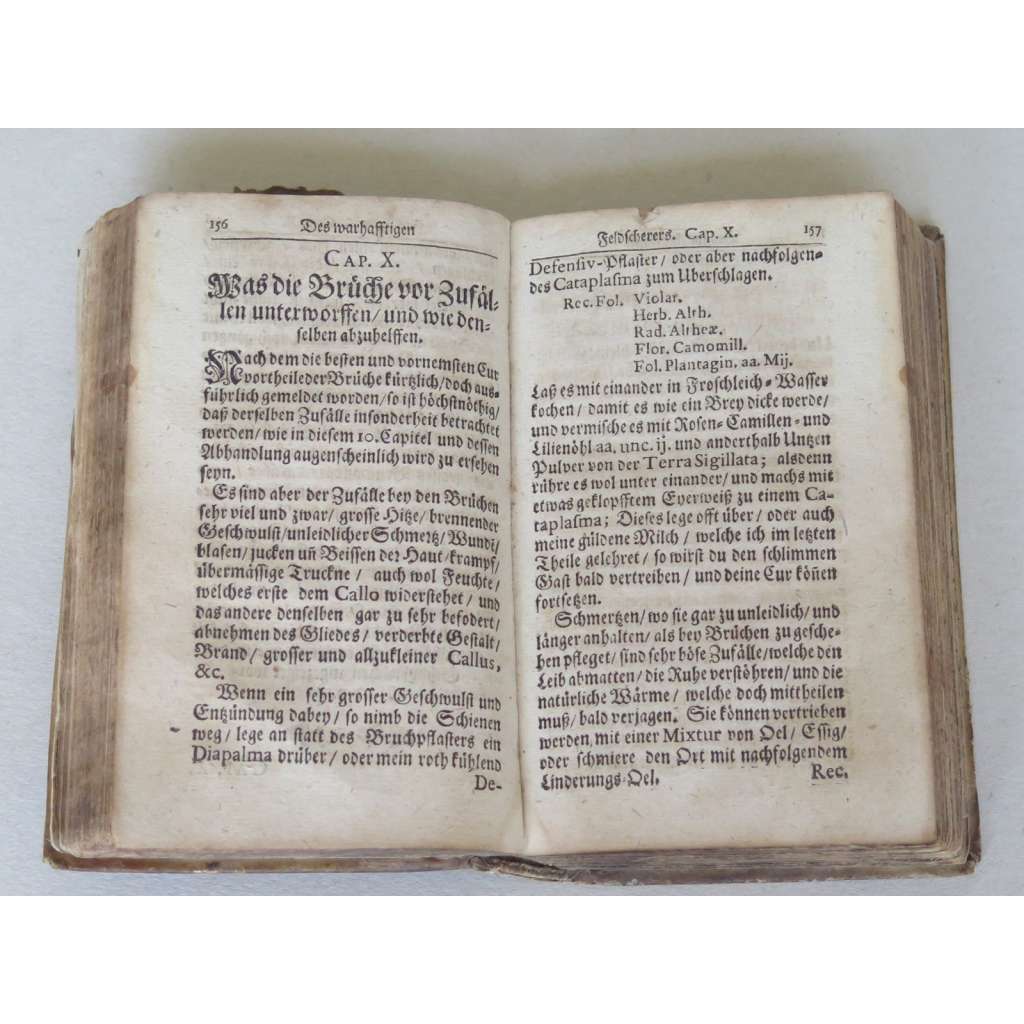 156 Des warhafftigen
CAP. X.
Was die Brüche vor Zufäl-
len unterworffen/ und wie den-
selben abzuhelffen.
Nach dem die besten und vornemsten Cur
vortheile der Brüche kürtzlich/ doch aus-
führlich gemeldet worden/ so ist höchstnöthig/
daß derselben Zufälle insonderheit betrachtet
werden/ wie in diesem 10. Capitel und dessen
Abhandlung augenscheinlich wird zu ersehen
seyn.
Es sind aber der Zufälle bey den Brüchen
sehr viel und zwar/ grosse Hitze/ brennender
Geschwulst/ unleidlicher Schmertz/ Wundi/
blasen/ jucken uñ Beissen der Haut/ krampf/
übermässige Truckne/ auch wol Feuchte/
welches erste dem Callo widerstehet/ und
das andere denselben gar zu sehr befodert/
abnehmen des Gliedes/ verderbte Gestalt/
Brand/ grosser und allzukleiner Callus,
&c.
Wenn ein sehr grosser Geschwulst und
Entzündung dabey/ so nimb die Schienen
weg/ lege an statt des Bruchpflasters ein
Diapalma drüber/ oder mein roth kühlend
De-
Feldscherers. Cap. X. 157
Defensiv-Pflaster/ oder aber nachfolgen-
des Cataplasma zum Uberschlagen.
Rec. Fol. Violar.
Herb. Alth.
Rad. Altheæ.
Flor. Camomill.
Fol. Plantagin. aa. Mij.
Laß es mit einander in Froschleich-Wasser
kochen/ damit es wie ein Brey dicke werde/
und vermische es mit Rosen-Camillen-und
Lilienöhl aa. unc. ij. und anderthalb Untzen
Pulver von der Terra Sigillata; alsdenn
rühre es wol unter einander/ und machs mit
etwas geklopfftem Eyerweiß zu einem Ca-
taplasma; Dieses lege offt über/ oder auch
meine güldene Milch/ welche ich im letzten
Theile gelehret/ so wirst du den schlimmen
Gast bald vertreiben/ und deine Cur köñen
fortsetzen.
Schmertzen/ wo sie gar zu unleidlich/ und
länger anhalten/ als bey Brüchen zu gesche-
hen pfleget/ sind sehr böse Zufälle/ welche den
Leib abmatten/ die Ruhe verstöhren/ und die
natürliche Wärme/ welche doch mittheilen
muß/ bald verjagen. Sie können vertrieben
werden, mit einer Mixtur von Oel/ Essig/
oder schmiere den Ort mit nachfolgendem
Linderungs-Oel. Rec.